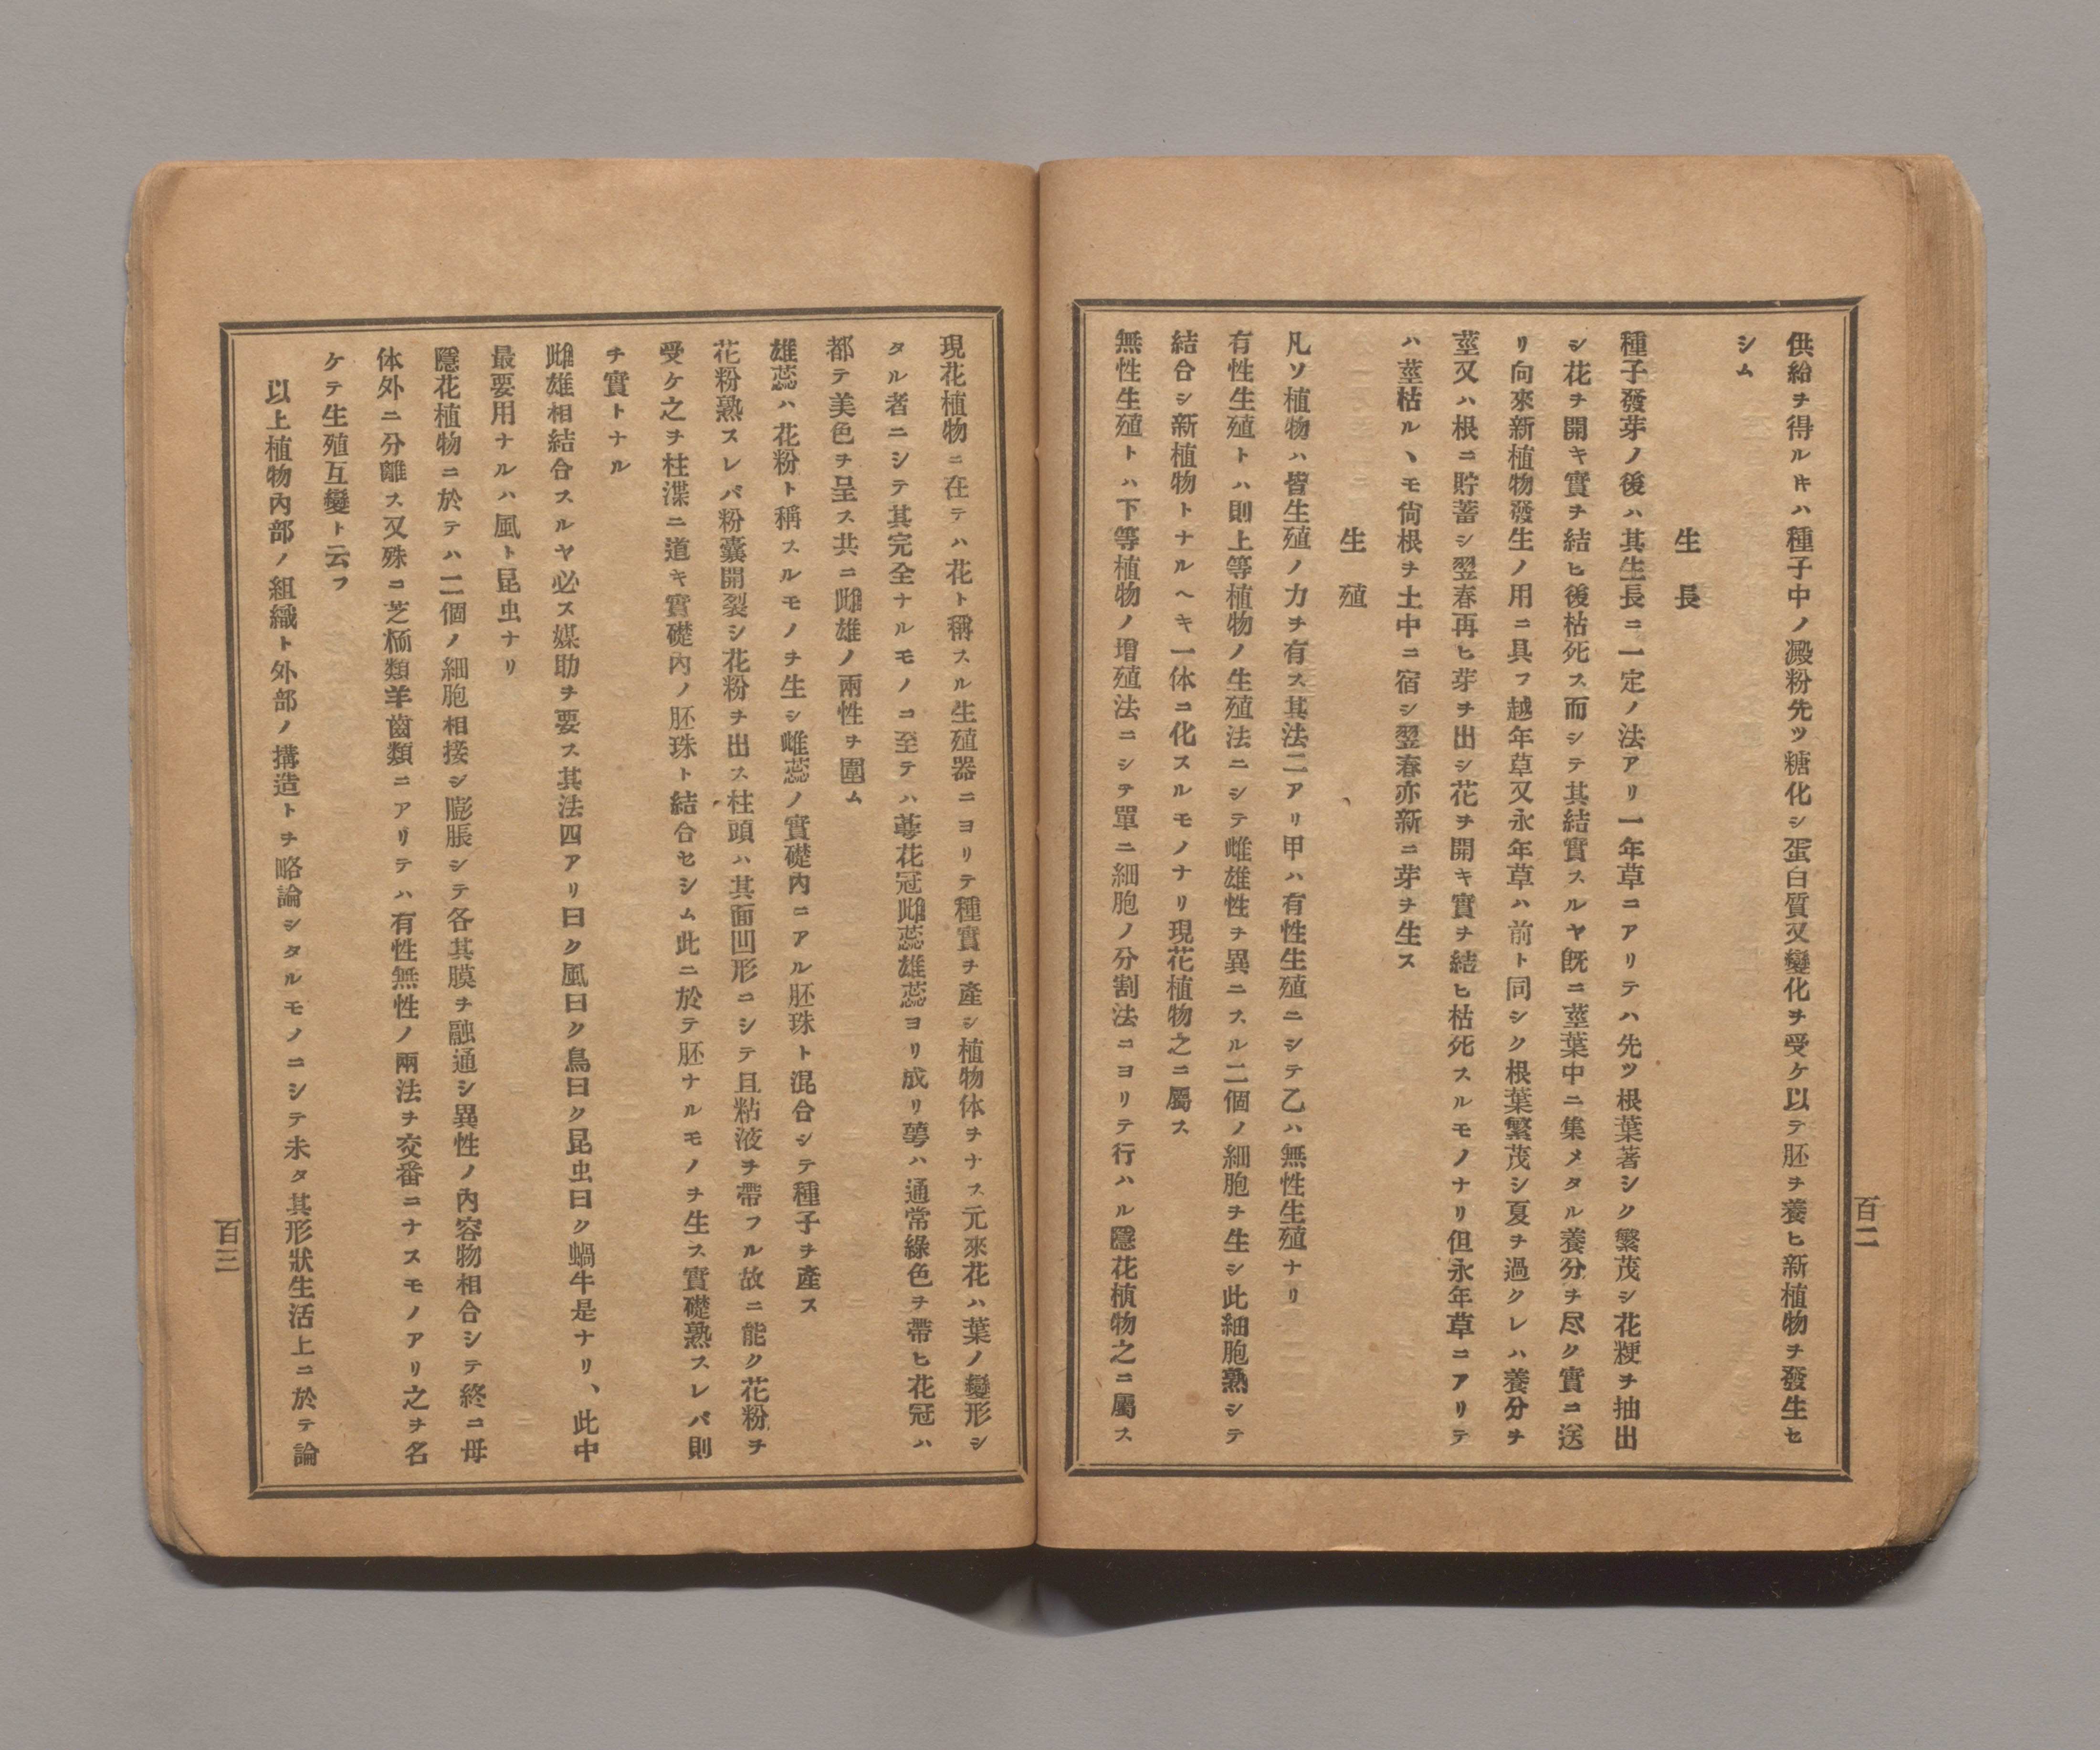 供給ヲ得ルキハ種子中ノ澱粉先ツ糖化シ蛋白質又變化ヲ受ケ以テ胚ヲ養ヒ新植物ヲ發生セ
シム
生長
種子發芽ノ後ハ其生長ニ一定ノ法アリ一年草ニアリテハ先ツ根葉著シク繁茂シ花梗ヲ抽出
シ花ヲ開キ實ヲ結ヒ後枯死ス而シテ其結實スルヤ既ニ莖葉中ニ集メタル養分ヲ尽ク實ニ送
リ向來新植物發生ノ用ニ具フ越年草又永年草ハ前ト同シク根葉繁茂シ夏ヲ過クレハ養分ヲ
莖又ハ根ニ貯蓄シ翌春再ヒ芽ヲ出シ花ヲ開キ實ヲ結ヒ枯死スルモノナリ但永年草ニアリテ
ハ莖枯ルヽモ尙根ヲ土中ニ宿シ翌春亦新ニ芽ヲ生ス
生殖
凡ソ植物ハ皆生殖ノ力ヲ有ス其法二アリ甲ハ有性生殖ニシテ乙ハ無性生殖ナリ
有性生殖トハ則上等植物ノ生殖法ニシテ雌雄性ヲ異ニスル二個ノ細胞ヲ生シ此細胞熟シテ
結合シ新植物トナルヘキ一体ニ化スルモノナリ現花植物之ニ屬ス
無性生殖トハ下等植物ノ增殖法ニシテ單ニ細胞ノ分割法ニヨリテ行ハル隱花植物之ニ屬ス
百二
現花植物ニ在テハ花ト稱スル生殖器ニヨリテ種實ヲ產シ植物体ヲナス元來花ハ葉ノ變形シ
タル者ニシテ其完全ナルモノニ至テハ萼花冠雌蕊雄蕊ヨリ成リ萼ハ通常綠色ヲ帶ヒ花冠ハ
都テ美色ヲ呈ス共ニ雌雄ノ兩性ヲ圍ム
雄蕊ハ花粉ト稱スルモノヲ生シ雌蕊ノ實礎內ニアル胚珠ト混合シテ種子ヲ產ス
花粉熟スレバ粉囊開裂シ花粉ヲ出ス柱頭ハ其面凹形ニシテ且粘液ヲ帶フル故ニ能ク花粉ヲ
受ケ之ヲ柱渫ニ道キ實礎內ノ胚珠ト結合セシム此ニ於テ胚ナルモノヲ生ス實礎熟スレバ則
チ實トナル
雌雄相結合スルヤ必ス媒助ヲ要ス其法四アリ曰ク風曰ク鳥曰ク昆虫曰ク蝸牛是ナリ、此中
最要用ナルハ風ト昆虫ナリ
隱花植物ニ於テハ二個ノ細胞相接シ膨脹シテ各其膜ヲ融通シ異性ノ內容物相合シテ終ニ母
体外ニ分離ス又殊ニ芝栭類羊齒類ニアリテハ有性無性ノ兩法ヲ交番ニナスモノアリ之ヲ名
ケテ生殖互變ト云フ
以上植物內部ノ組織ト外部ノ搆造トヲ略論シタルモノニシテ未タ其形狀生活上ニ於テ論
百三